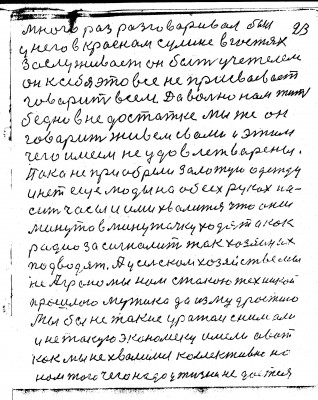 много раз разговаривал был 23
у него в красном сулине в гостях
Заслуживает он быт учетелем
он к себя это все не присваевает
говарит всем Даволно нам жит
бедно в не достатке мы же он
говарит живем вами а этим
чего имеем не удовлетварены.
Пака не приобрели Залотую одежду
и нет еще моды на обеех руках на-
сит часы и ими хвалится что они
минуто в минуточку ходят а как
радио засигналит так хозяинах
подводят. А у селском хозяйстве мы
не Аграномы нам с такою техникой
прошлого мужика да из мудростию
Мы бы не такие уражаи снимали
и не такую экономеку имели а вот
как мы не хвалимся коллективно но
нам того чего надо у жизни не дается